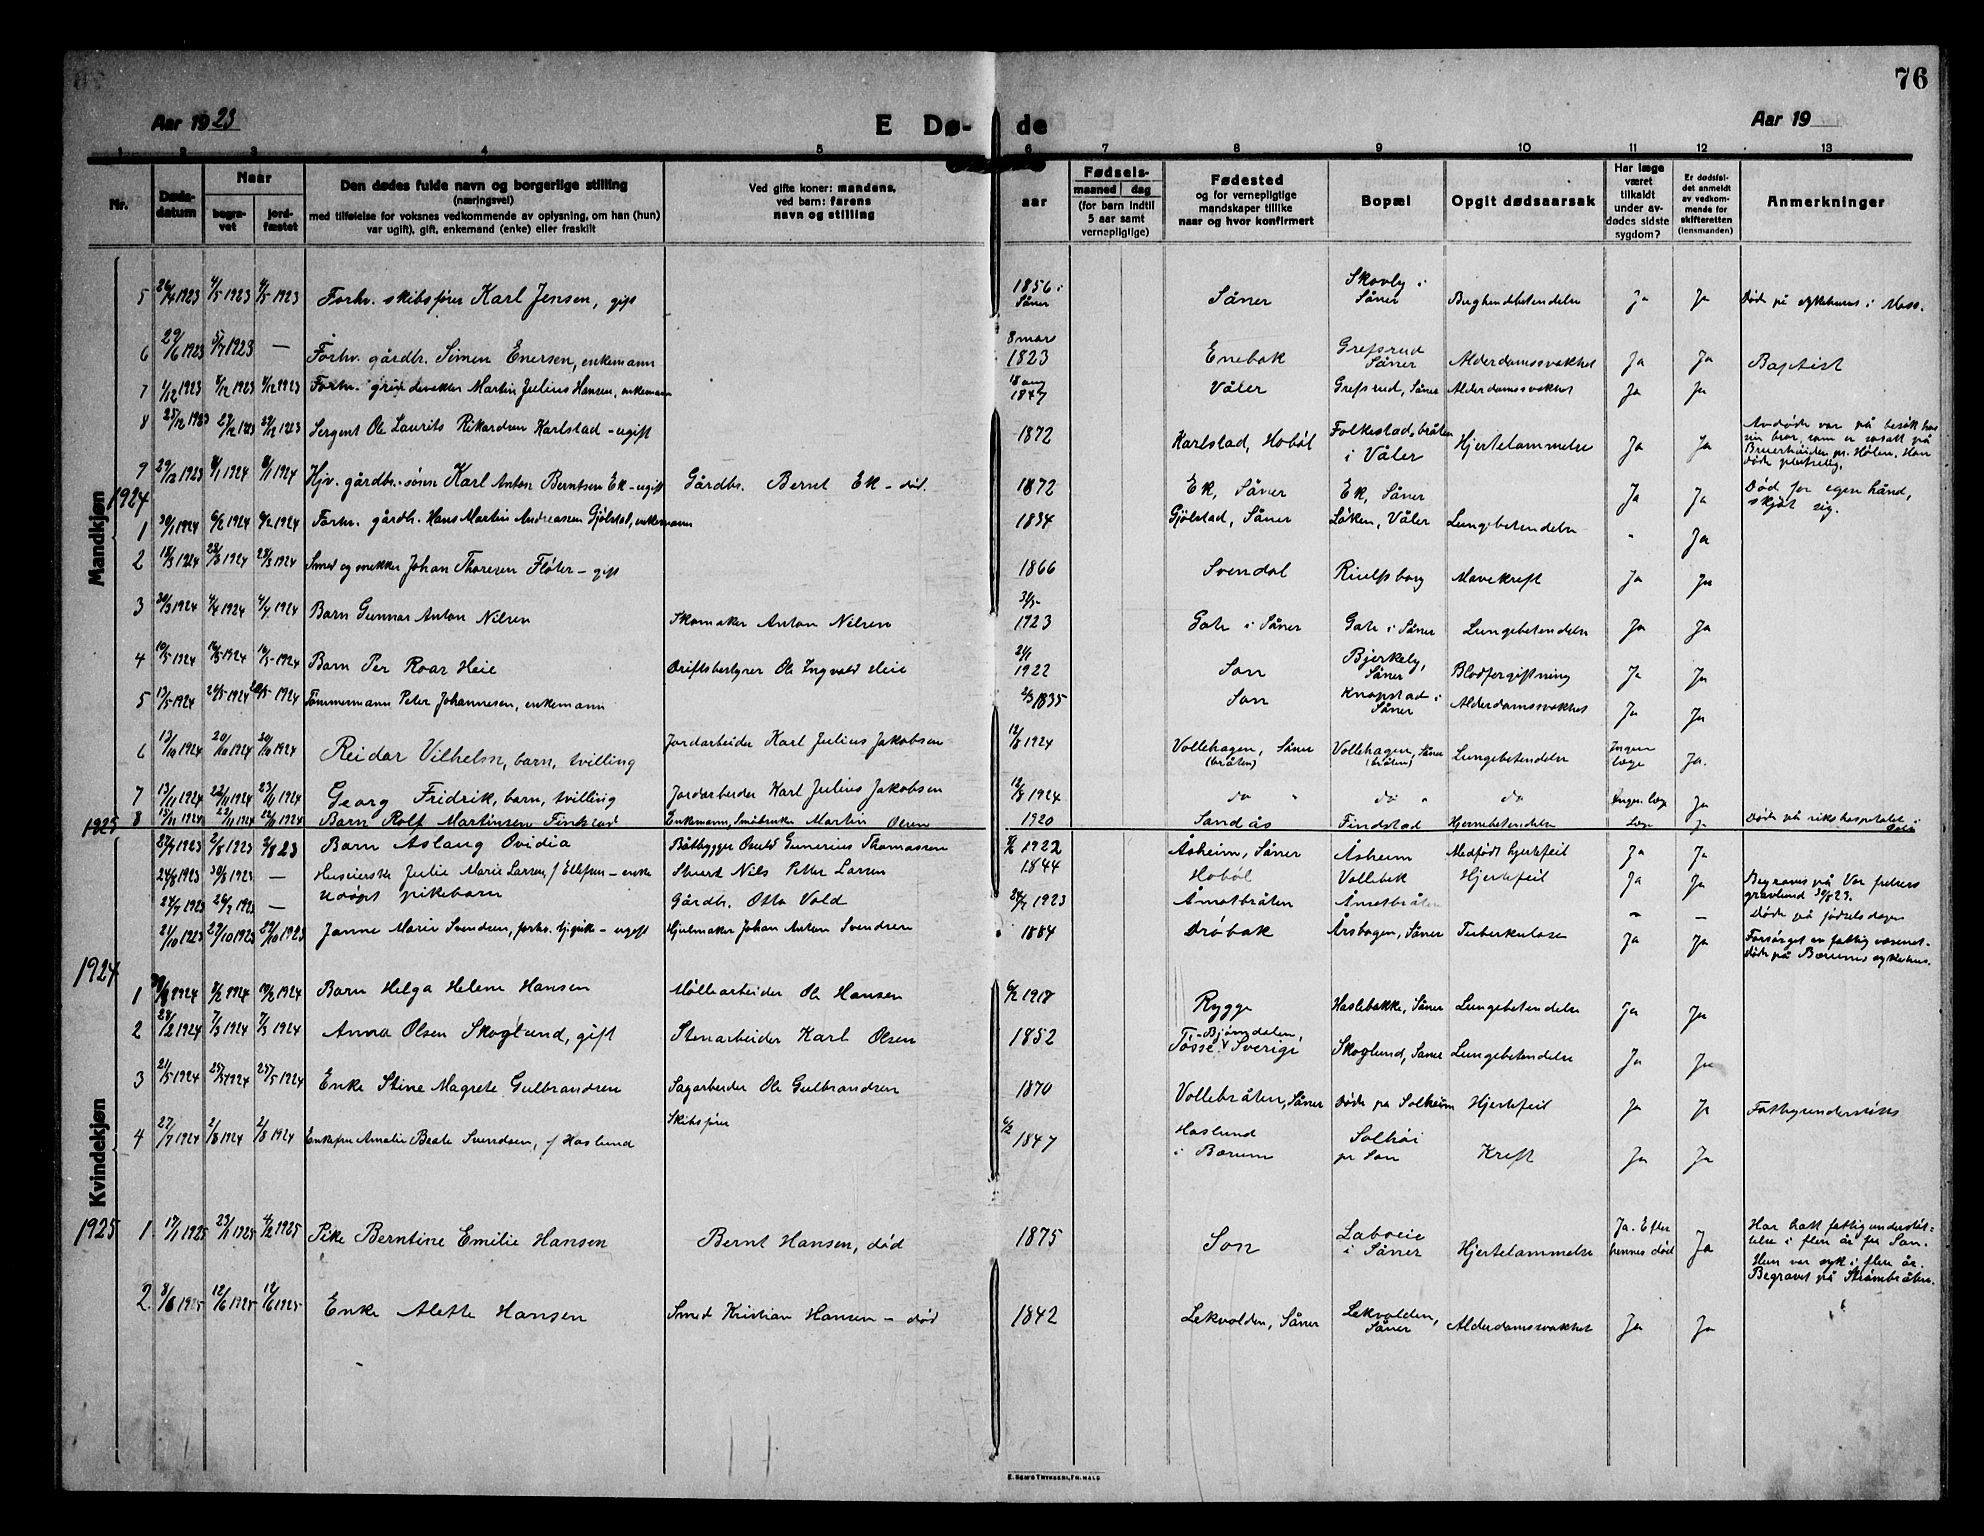 76
Aar 1923
E Dø- de
Aar 19
1 2 3 4 5 6 7 8 9 10 11 12 13
Nr.
Døds-
datum
Naar
begra-
vet
jord-
fæstet
Den dødes fulde navn og borgerlige stilling
(næringsvei)
med tilføielse for voksnes vedkommende av oplysning, om han (hun)
var ugift), gift, enkemand (enke) eller fraskilt
Ved gifte koner: mandens,
ved barn: farens
navn og stilling
aar
Fødsels-
maaned dag
(for barn indtil
5 aar samt
vernepligtige)
Fødested
og for vernepligtige
mandskaper tillike
naar og hvor konfirmert
Bopæl
Opgit dødsaarsak
Har læge
været
tilkaldt
under av-
dødes sidste
sygdom?
Er dødsfal-
det anmeldt
av vedkom-
mende for
skifteretten
(lensmanden)
Anmerkninger
Mandkjøn
5 26/4 1923 4/5 1923 4/5 1923 Forhv. skibsfører Karl Jensen, gift 1856 i Såner Såner Skovly i Såner Ja Ja Døde på sykehuset i Moss.
6 29/6 1923 5/7 1923 — Forhv. gårdbr. Simen Enersen, enkemann 8 mars 1823 Enebak Grefsrud Såner Alderdomssvakhet Ja Ja Baptist
7 1/12 1923 Forhv. Martin Julius Hansen, enkemann 18 aug 1847 Våler Grefsrud, Såner Alderdomssvakhet Ja Ja
8 Sergent Ole Laurits Rikardsen Karlstad – ugift 1872 Karlstad, Hobøl Folkestad, bråten i Våler Hjertelammelse Ja Ja Avdøde var på besøk hos
sin bror, som er bosatt på
pr. Hølen. Han
døde plutselig.
9 29/12 1923 8/1 1924 8/1 1924 Hjv. gårdbr.-sønn Karl Anton Berntsen Ek – ugift Gårdbr. Bernt Ek – død. 1872 Ek, Såner Ek, Såner Ja Ja Død for egen hånd,
skjøt sig.
1924
1 30/1 1924 6/2 1924 6/2 1924 Forhv. gårdbr. Hans Martin Andreassen Gjølstad, enkemann 1834 Gjølstad, Såner Løken, Våler Lungebetendelse " Ja
2 18/3 1924 28/3 1924 28/3 1924 Smed og snekker Johan Thoresen Fløter – gift 1866 Svendal Mavekreft Ja Ja
3 30/3 1924 4/4 1924 4/4 1924 Barn Gunnar Anton Nilsen Skomaker Anton Nilsen 1923 Gate i Såner Gate i Såner Lungebetendelse Ja Ja
4 10/5 1924 16/5 1924 16/5 1924 Barn Per Roar Heie Driftsbestyrer Ole Ingvald Heie 21/1 1922 Son Bjerkely, Såner Blodforgiftning Ja Ja
5 13/5 1924 20/5 1924 20/5 1924 Tømmermann Peter Johannesen, enkemann 2/3 1835 Son Knapstad i Såner Alderdomssvakhet Ja Ja
6 13/10 1924 20/10 1924 20/10 1924 Reidar Vilhelm, barn, tvilling Jordarbeider Karl Julius Jakobsen 12/8 1924 Vollehagen, Såner (bråten) Vollehagen, Såner (bråten) Lungebetendelse Ingen læge Ja.
7 13/11 1924 22/11 1924 23/11 1924 Georg Fridrik, barn, tvilling Jordarbeider Karl Julius Jakobsen 12/8 1924 do " do " do Ingen læge Ja
8 15/11 1924 22/11 1924 22/11 1924 Barn Rolf Martinsen Findstad Enkemann, Småbruker Martin Olsen 1920 Sandås Findstad Hjernebetendelse Døde på rikshospitalet i Oslo
1925
Kvindekjøn
27/7 1923 2/8 1923 2/8 23 Barn Aslaug Ovidia Båtbygger Gunerius Thomassen 1922 Åsheim, Såner Åsheim Medfødt hjertefeil Ja Ja
24/8 1923 30/8 1923 — Julie Marie Larsen, f Ellefsen – enke Nils Petter Larsen 1844 Hobøl Vollebek Hjertefeil Ja Ja Begraves på Vor frelsers
gravlund 30/8 23.
24/7 1923 26/7 1923 — udøpt pikebarn Gårdbr. Otto Vold 24/7 1923 Åmotbråten Åmotbråten – – Døde på fødselsdagen
21/10 1923 29/10 1923 29/10 1923 Janne Marie Svendsen, forhv. tj.pike – ugift Hjulmaker Johan Anton Svendsen 1884 Drøbak Årsbogen, Såner Tuberkulose Ja Ja Forsørget av fattigvæsenet.
Døde på Bærums sykehus.
1924
1 8/2 1924 14/2 1924 Barn Helga Helene Hansen Møllearbeider Ole Hansen 6/2 1918 Rygge Haslebakke, Såner Lungebetendelse Ja Ja
2 28/2 1924 7/3 1924 7/3 1924 Anna Olsen Skoglund, gift Stenarbeider Karl Olsen 1852 Tøsse Sverige Skoglund, Såner Lungebetendelse Ja Ja
3 21/5 1924 25/5 1924 25/5 1924 Enke Stine Magrete Gulbrandsen Sagarbeider Ole Gulbrandsen 1870 Vollebråten, Såner Døde på Solheim Hjertefeil Ja Ja Fattigunderstøtt.
4 27/7 1924 2/8 1924 2/8 1924 Enkefru Amalie Beate Svendsen, f Haslund Skibsfører 6/2 1847 Haslund i Bærum Solhøi pr Son Kreft Ja Ja
1925
1 17/1 1925 23/1 1925 4/2 1925 Pike Berntine Emilie Hansen Bernt Hansen, død 1875 Son Laboeie i Såner Hjertelammelse Ja. Efter hennes død Ja Har hatt fattigunderstøt-
telse i flere år fra Son.
Hun var syk i flere år.
Begravet på Strømbråten.
2 8/6 1925 12/6 1925 12/6 1925 Enke Alette Hansen Smed Kristian Hansen – død 1842 Lekvolden, Såner Lekvolden, Såner Alderdomssvakhet Ja Ja
E. SEM'S TRYKKERI, FR. HALD